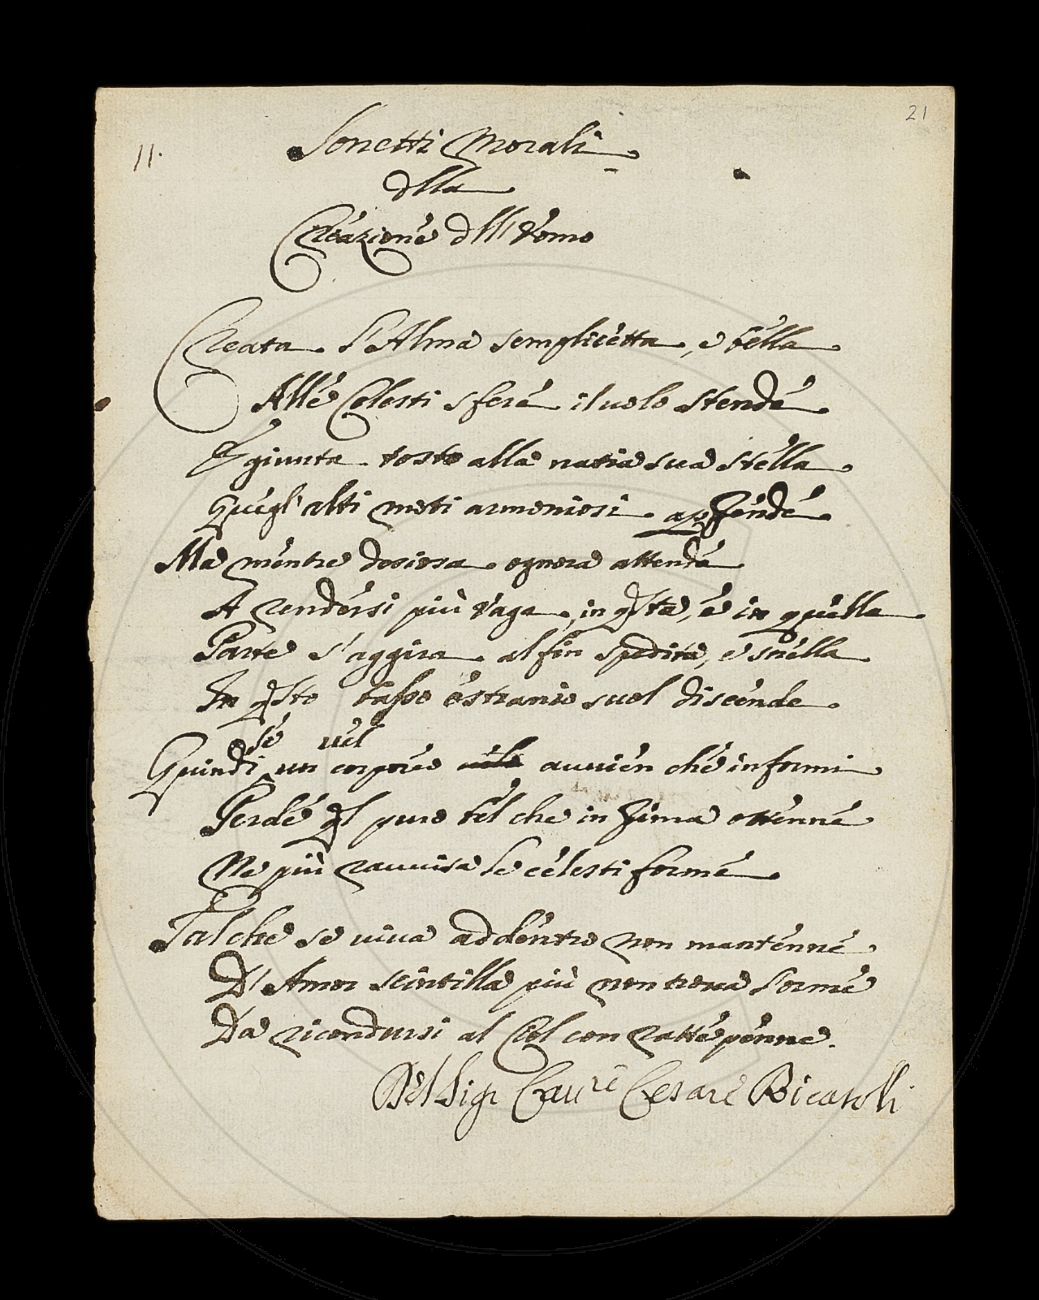 21
11.
Sonetti Morali
dlla
Creazione dll'Vomo
Creata l'Alma semplicetta, e bella
Alle Celesti sfere il uolo stende
E giunta tosto alla natia sua stella
Quegl'alti moti armoniosi apprende
Ma mentre desiosa ognora attende
A rendersi più vaga, in qsta, e in quella
Parte s'aggira al fin spedita, e snella
In qsto basso estranio suol discende
se uil
Quindi un corpore auuien che informi
Perde ql puro bel che in prima ottenne
Ne più rauuisa le celesti forme
Talche se uiua addentro non mantenne
D'Amor scintilla più non troua l'orme
Da ricondursi al Ciel con ratte penne.
Del Sigr Caure Cesare Ricasoli